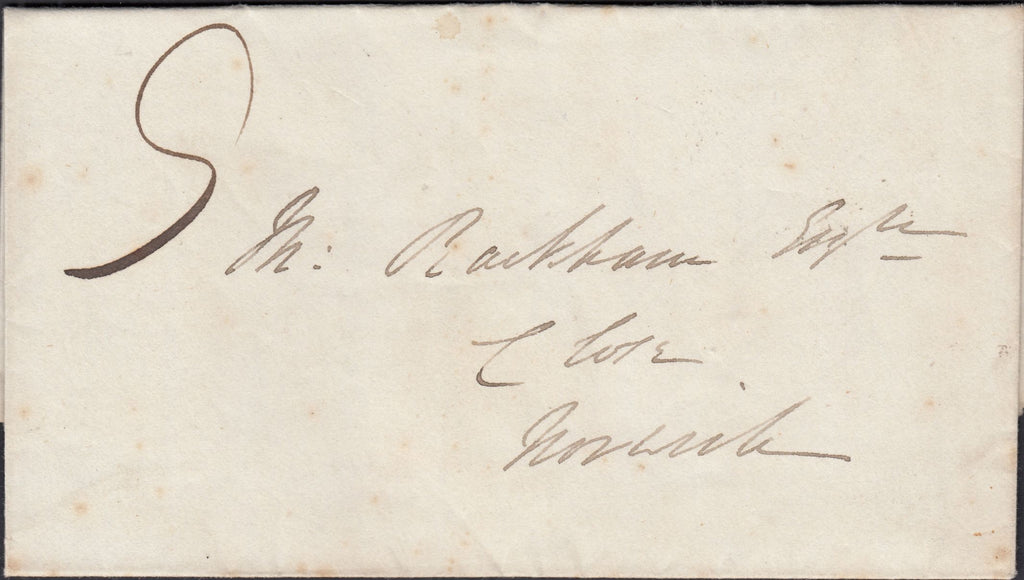 9
M: Rackham Esqre
Close
Norwich